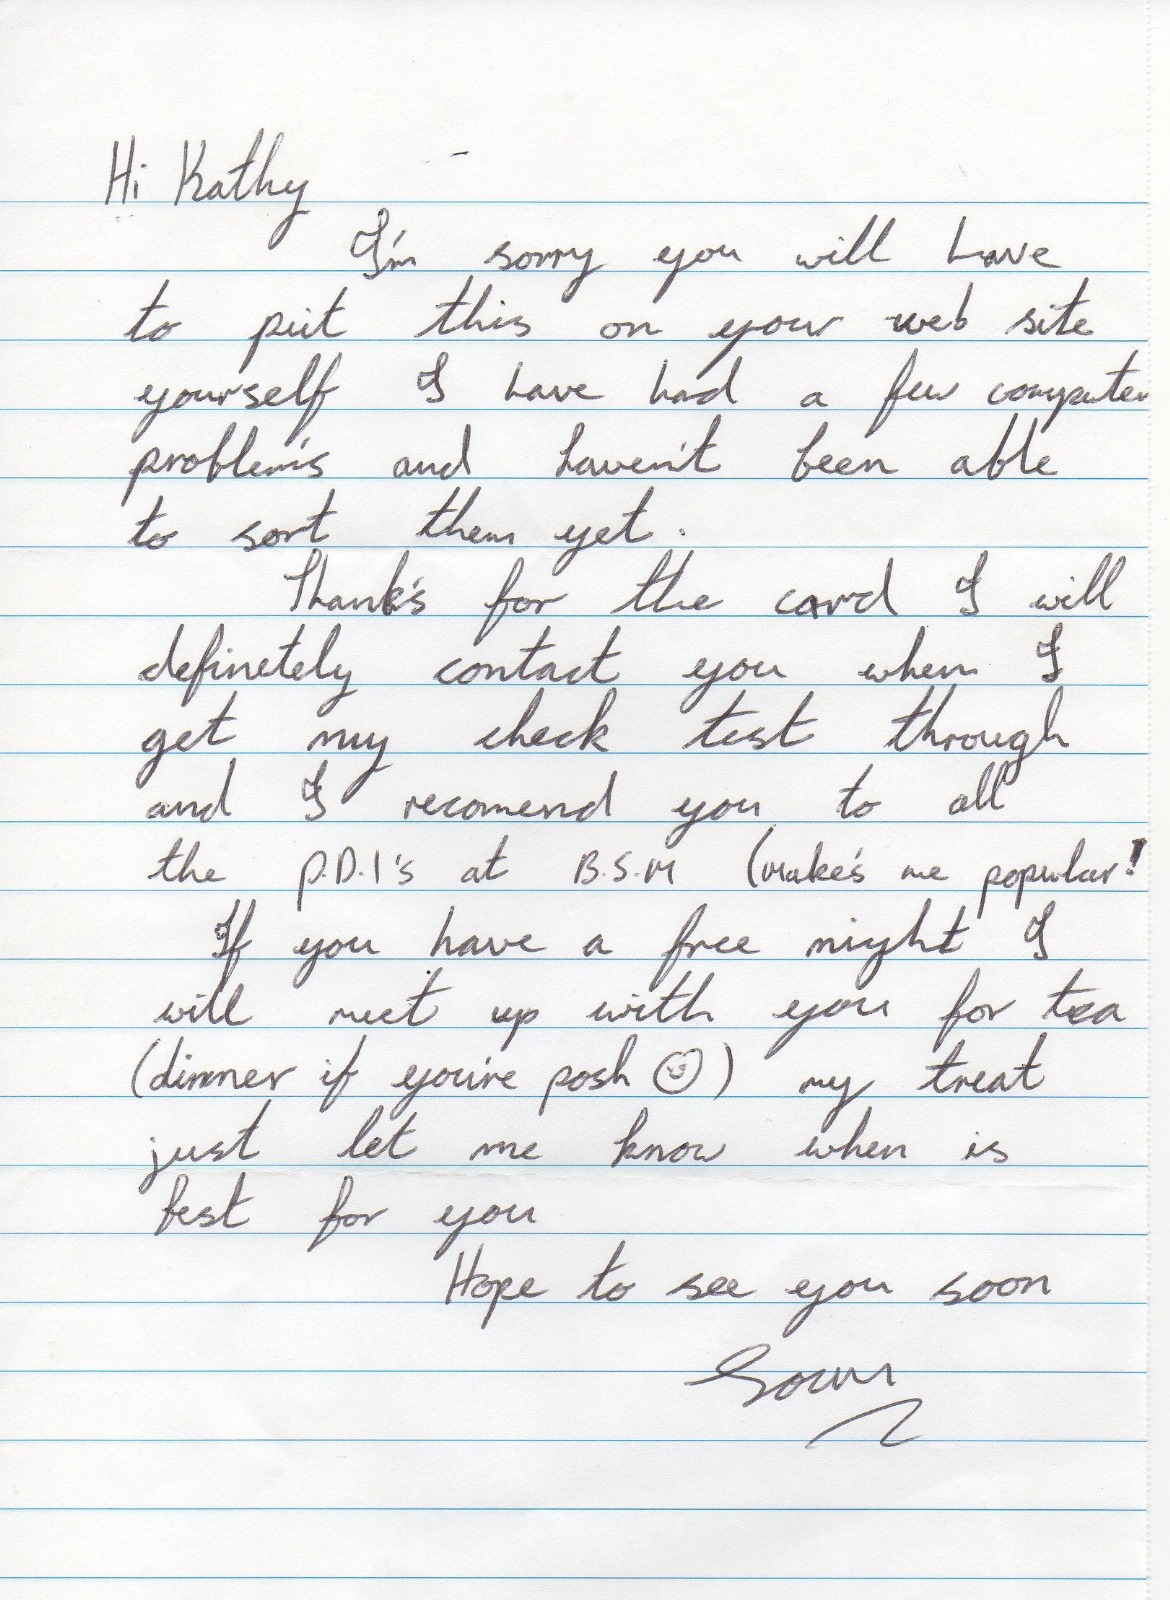 Hi Kathy
I'm sorry you will have
to put this on your web site
yourself I have had a few computer
problem's and haven't been able
to sort them yet.
Thank's for the card I will
definetely contact you when I
get my check test through
and I recomend you to all
the P.D.I's at B.S.M (make's me popular!
If you have a free night I
will meet up with you for tea
(dinner if you're posh ☺) my treat
just let me know when is
best for you
Hope to see you soon